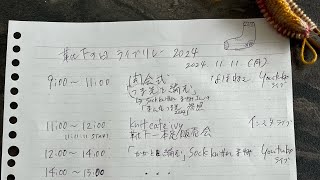 靴下の日 ライブリレー 2024
2024. 11. 11. (月)
9:00 〜 11:00 開会式 Youtube ライブ
「つま先を編む」
by Sock knitter
11:00 〜 12:00 knit cafe ivy インスタライブ
11:11:11 START 靴下一斉
12:00 〜 14:00 「かかとを編む」 Sock knitter Youtube ライブ
14:00 〜 15:00 . . .